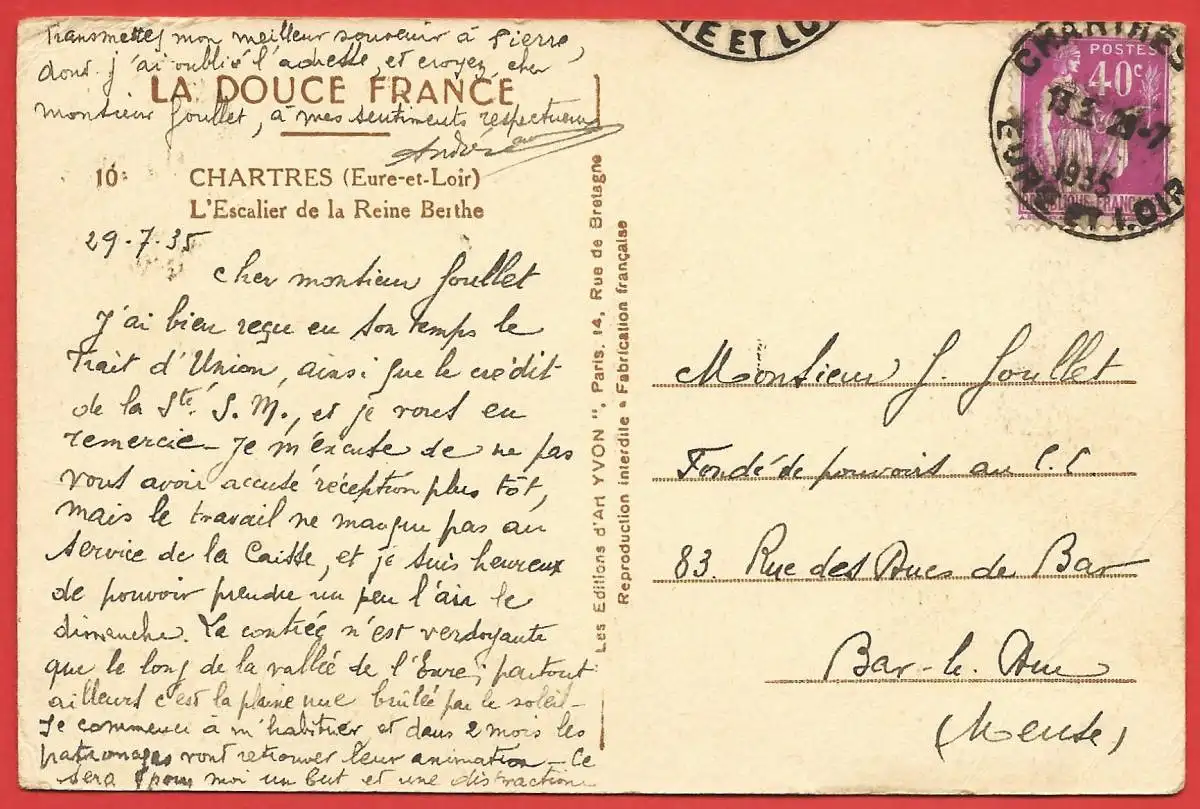 Transmettez mon meilleur souvenir à Pierre,
dont j'ai oublié l'adresse, et croyez, cher
LA DOUCE FRANCE
monsieur Goullet, à mes sentiments respectueux
André
10
CHARTRES (Eure-et-Loir)
L'Escalier de la Reine Berthe
29.7.35
Cher monsieur Goullet
J'ai bien reçu en son temps le
Trait d'Union, ainsi que le crédit
de la Sté. S.M., et je vous en
remercie – Je m'excuse de ne pas
vous avoir accusé réception plus tôt,
mais le travail ne manque pas au
service de la Caisse, et je suis heureux
de pouvoir prendre un peu l'air le
dimanche. La contrée n'est verdoyante
que le long de la vallée de l'Eure ; partout
ailleurs c'est la plaine nue brûlée par le soleil –
Je commence à m'habituer, et dans 2 mois les
patronages vont retrouver leur animation – Ce
sera pour moi un but et une distraction
Les Editions d'Art YVON ", Paris. 14, Rue de Bretagne
Reproduction interdite • Fabrication française
ET LOIR
CHARTRES
POSTES
40c
1935
EURE ET LOIR
Monsieur G. Goullet
Fondé de pouvoirs au C.C.
83. Rue des Ducs de Bar
Bar-le-Duc
(Meuse)